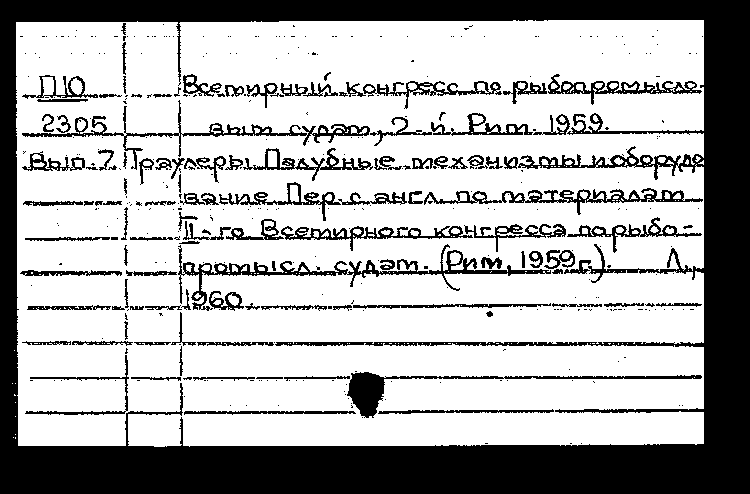 П10 Всемирный конгресс по рыбопромысло-
2305 вым судам, 2-й. Рим. 1959.
Вып. 7 Траулеры. Палубные механизмы и оборудо
вание. Пер. с англ. по материалам
II-го Всемирного конгресса по рыбо-
промысл. судам. (Рим, 1959 г.). Л.,
1960.